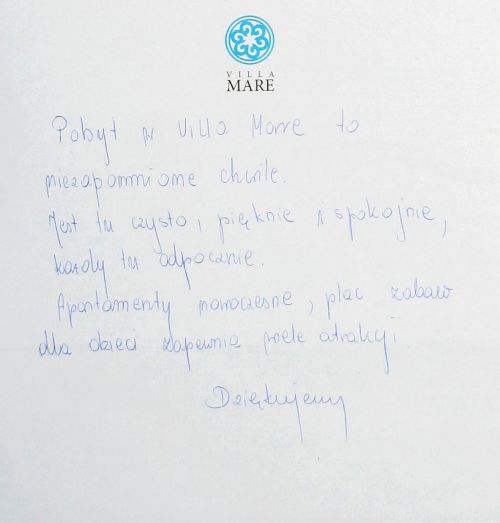 VILLA
MARE
Pobyt w Villa Marre to
niezapomniane chwile.
Jest tu czysto, pięknie i spokojnie,
każdy tu odpocznie.
Apartamenty nowoczesne, plac zabaw
dla dzieci zapewnia wiele atrakcji.
Dziękujemy